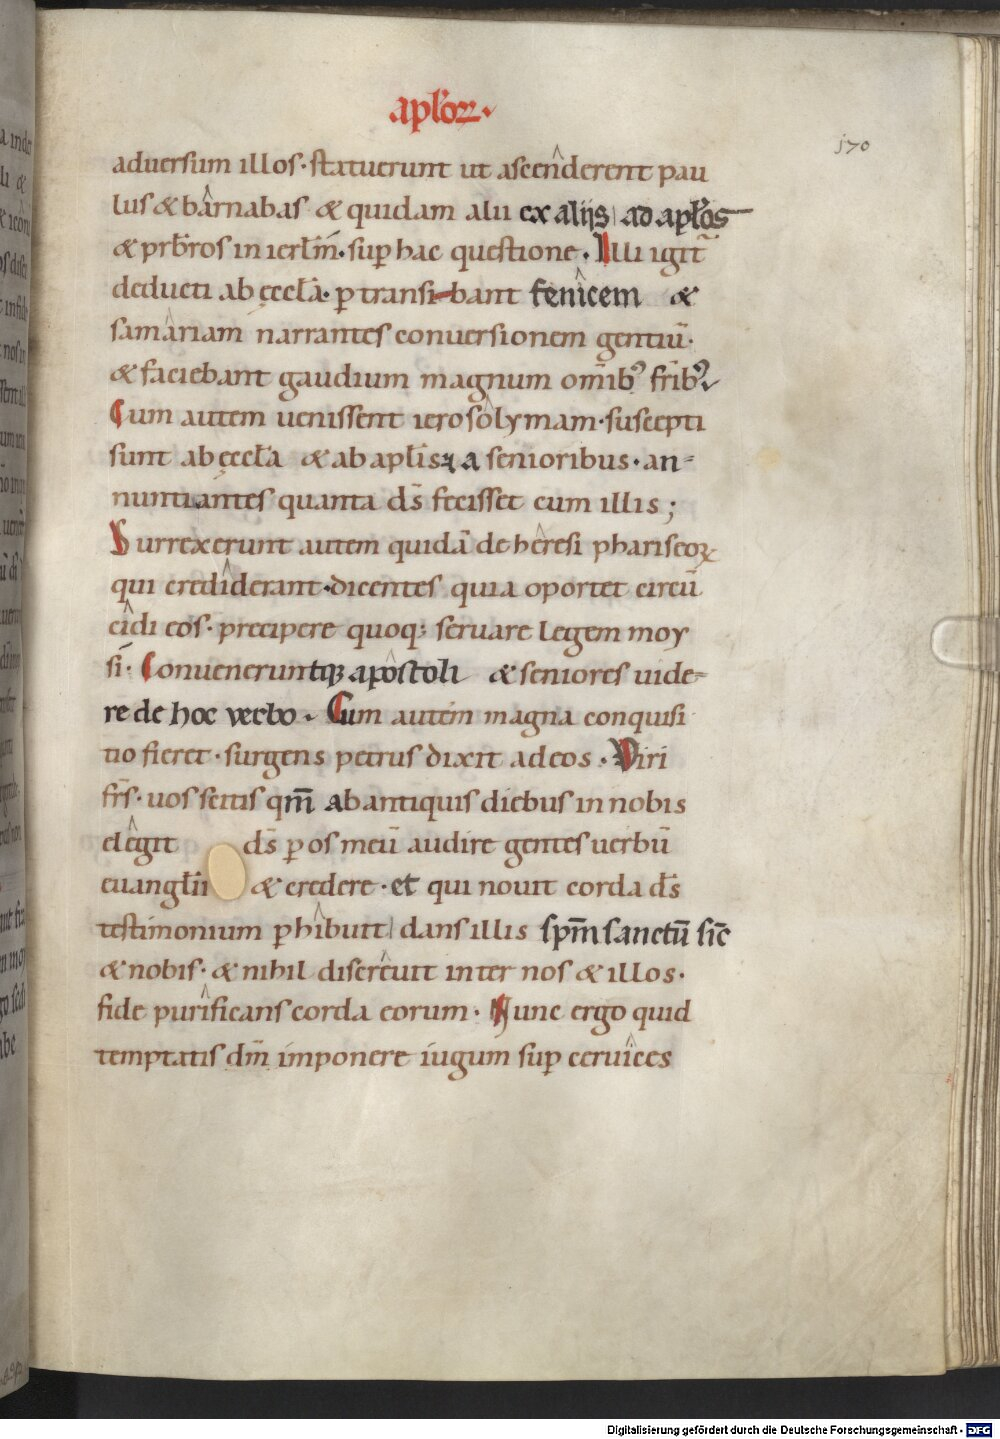 apl'oꝝ.
170
aduersum illos· statuerunt ut ascenderent pau
lus & barnabas & quidam alii ex aliis ad apl'os
& prb̄ros in ierl'm̄· suꝑ hac questione· Illi igit̄
deducti ab ęccl'a· ꝑ transi-bant fenicem &
samariam narrantes conuersionem gentiū·
& faciebant gaudium magnum om̄ib; fr̄ib;
Cum autem uenissent ierosolymam· suscepti
sunt ab ęccl'a & ab apl'is & a senioribus· an-
nuntiantes quanta ds̄ fecisset cum illis;
Surrexerunt autem quidā de heresi phariseoꝝ
qui crediderant· dicentes quia oportet circū
cidi eos· precipere quoq; seruare legem moy
si· Conueneruntq; apostoli & seniores uide-
re de hoc verbo· Cum autem magna conquisi
tio fieret· surgens petrus dixit ad eos· Viri
fr̄s· uos scitis qm̄ ab antiquis diebus in nobis
elegit ds̄ ꝑ os meū audire gentes uerbū
euangl'ii & credere· et qui nouit corda ds̄
testimonium ꝑhibuit dans illis sp̄m sanctū sic̄
& nobis· & nihil discreuit inter nos & illos·
fide purificans corda eorum· Nunc ergo quid
temptatis dm̄ imponere iugum suꝑ ceruices
Digitalisierung gefördert durch die Deutsche Forschungsgemeinschaft - DFG